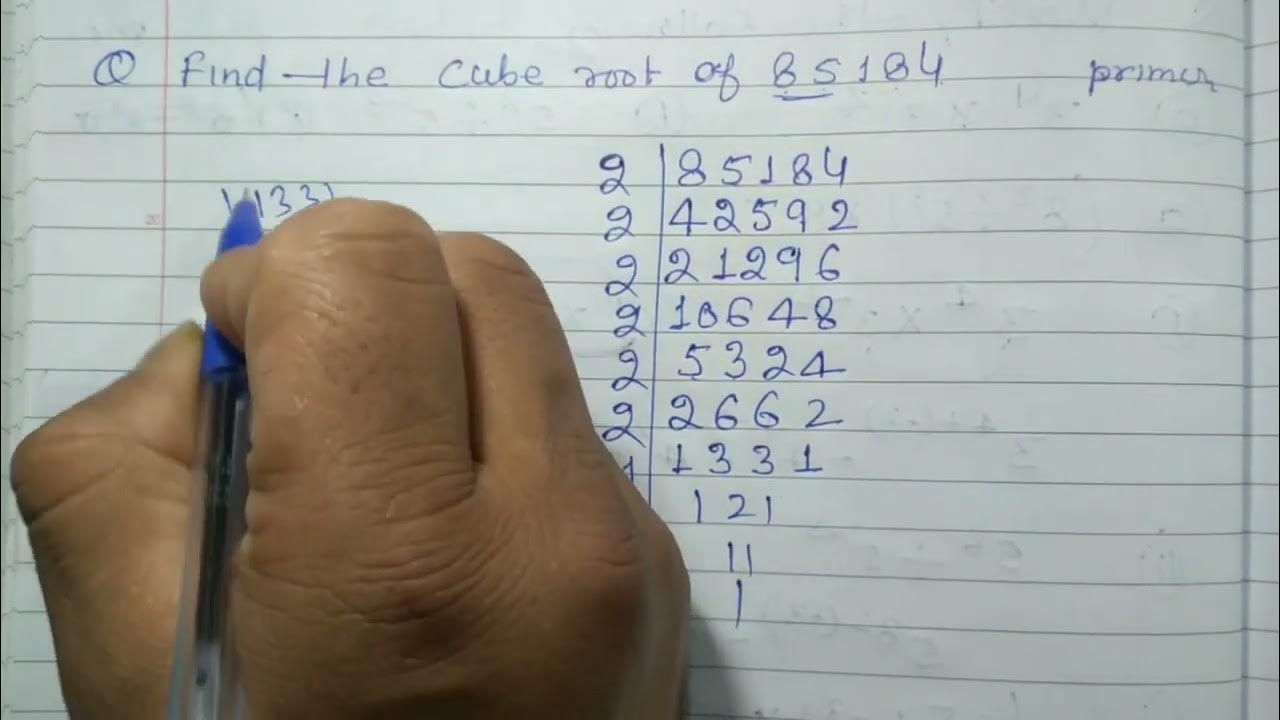 Q Find the cube root of 85184 primes
1331
2 | 85184
2 | 42592
2 | 21296
2 | 10648
2 | 5324
2 | 2662
1331
121
11
1